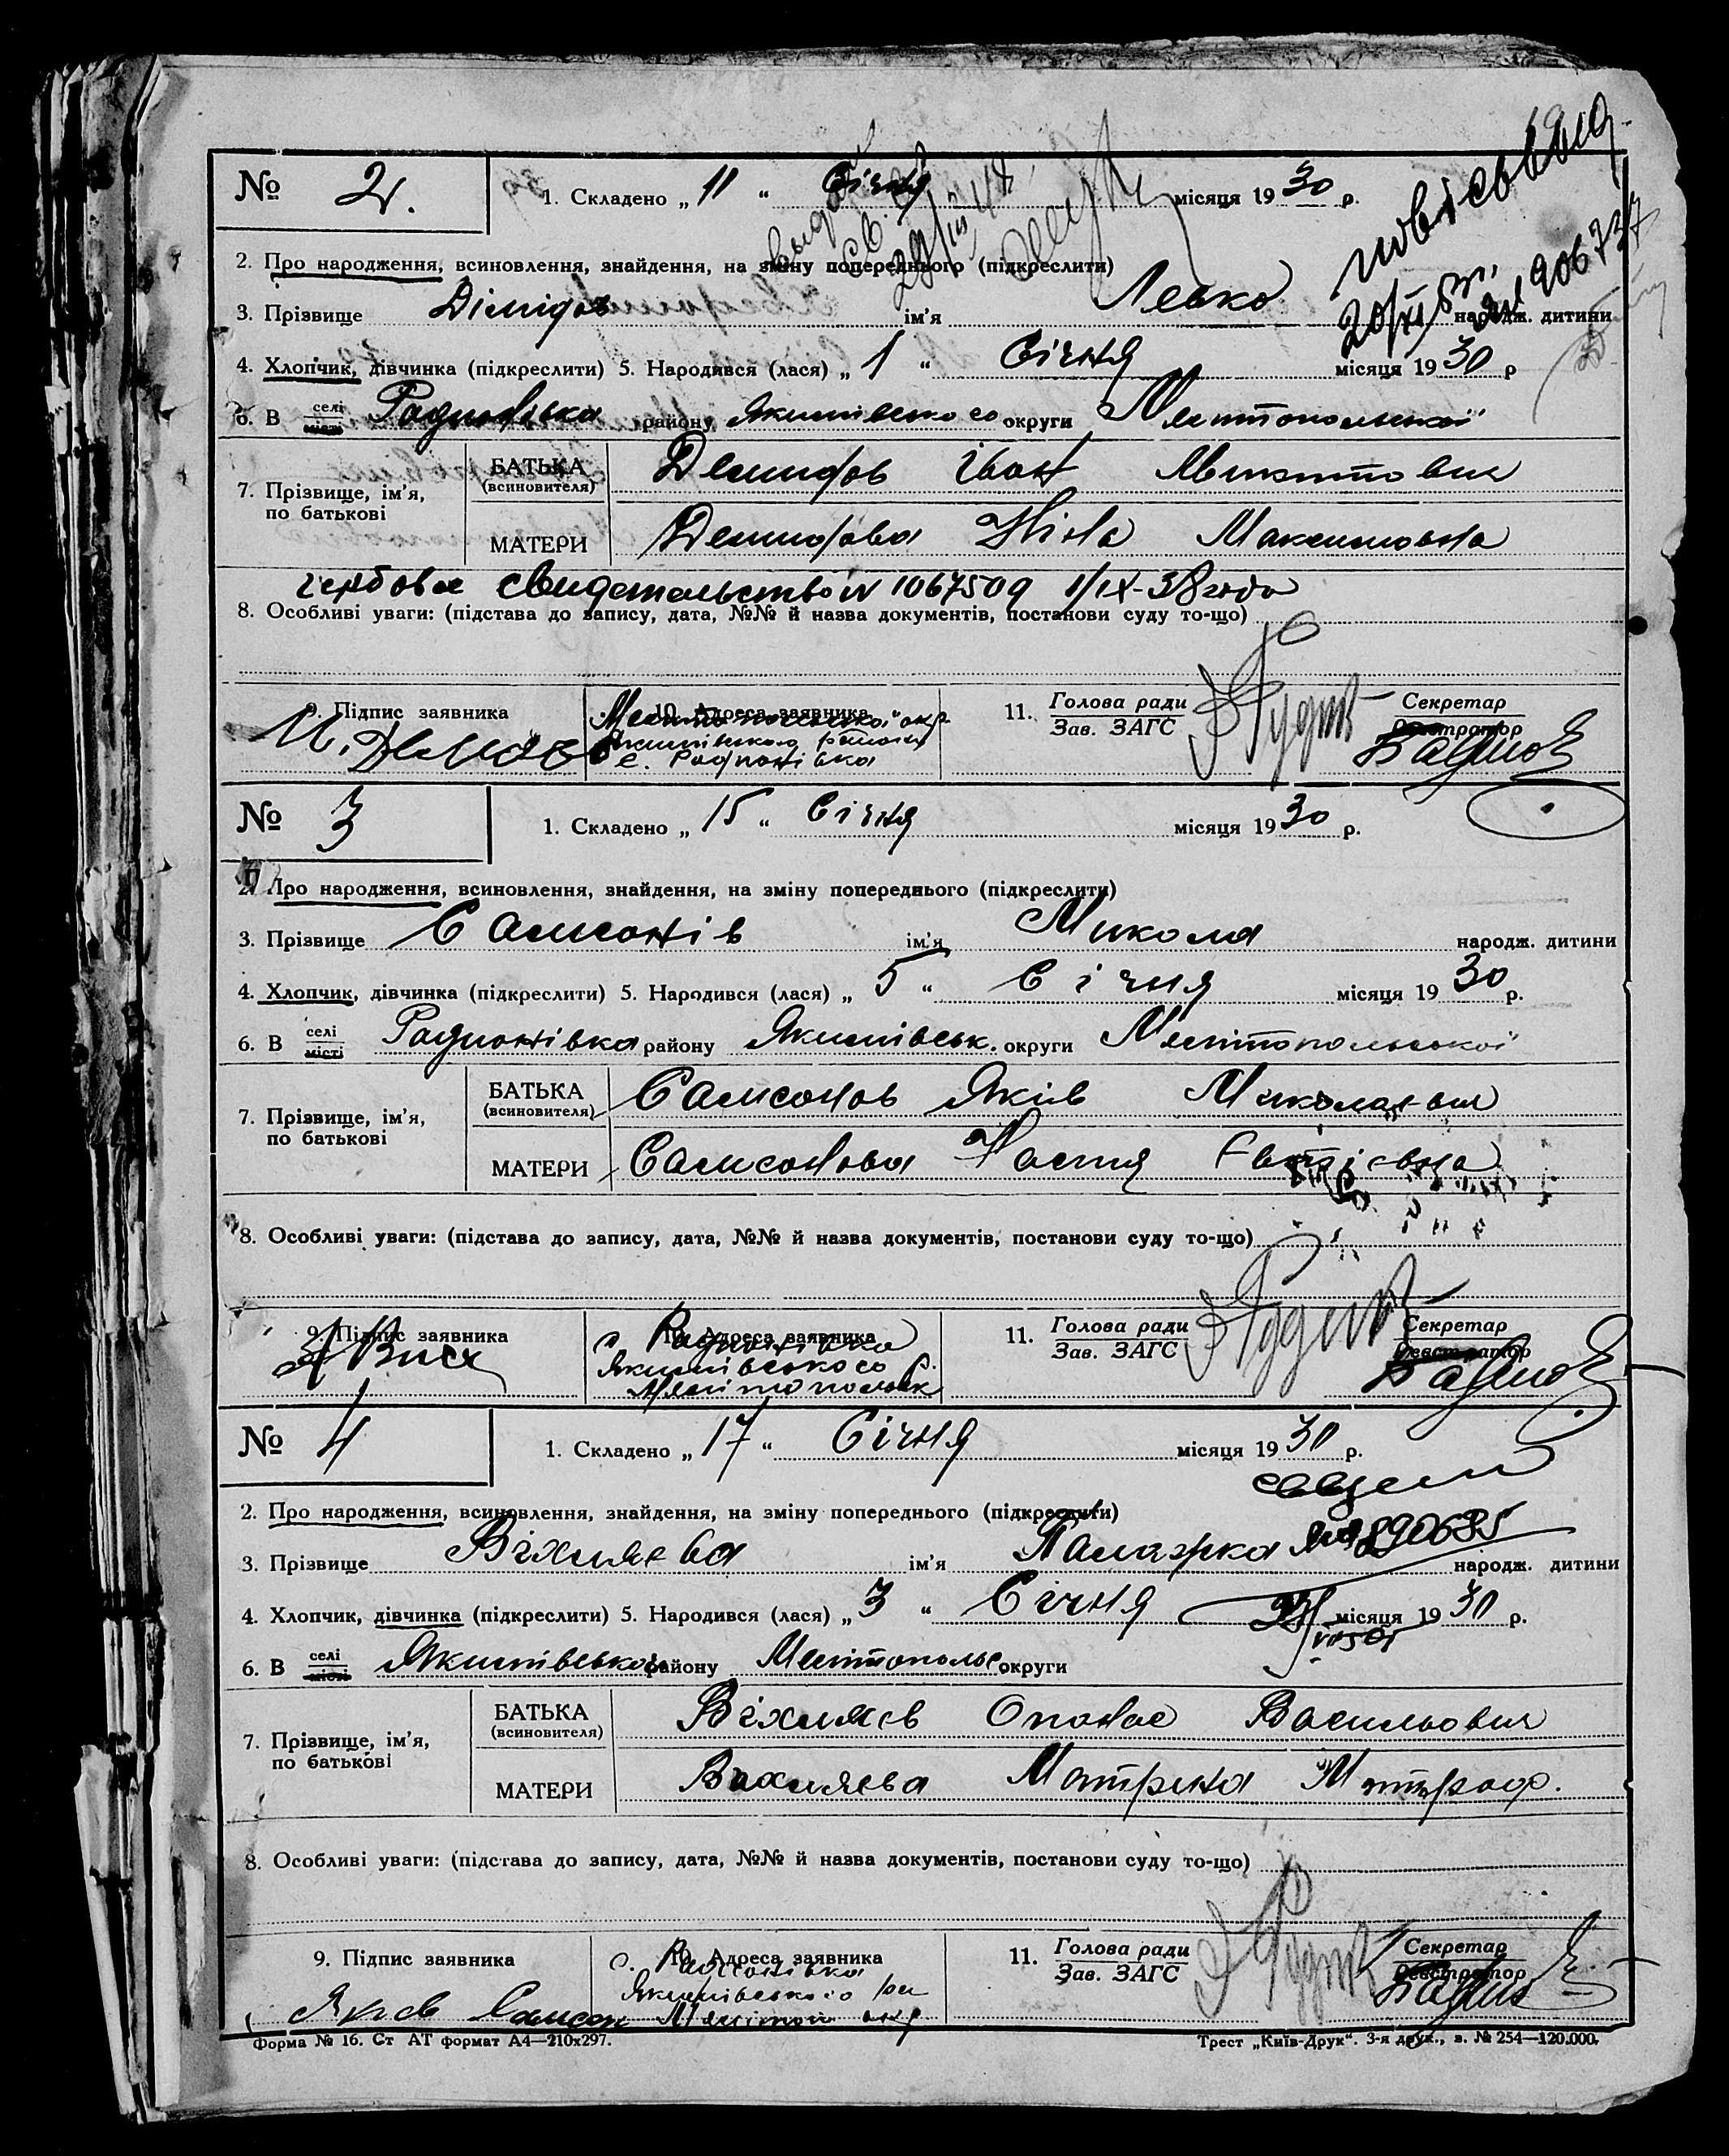 № 2. 1. Складено „ 11 “ Січня місяця 1930 р.
2. Про народження, всиновлення, знайдення, на зміну попереднього (підкреслити)
3. Прізвище Дімідов ім'я Левко народж. дитини
4. Хлопчик, дівчинка (підкреслити) 5. Народився (лася) „ 1 “ Січня місяця 1930 р
6. В селі місті Родионівка району Якимівського округи Мелітопольської
7. Прізвище, ім'я, по батькові
БАТЬКА (всиновителя) Демидов Іван Микитович
МАТЕРИ Демидова Ніна Максимовна
свидетельство N 1067509 1/IX-38 года
8. Особливі уваги: (підстава до запису, дата, №№ й назва документів, постанови суду то-що)
9. Підпис заявника 10. Адреса заявника 11. Голова ради Зав. ЗАГС Секретар Реєстратор
Якимівського району
с. Родионівка
№ 3 1. Складено „ 15 “ Січня місяця 1930 р.
2. Про народження, всиновлення, знайдення, на зміну попереднього (підкреслити)
3. Прізвище Самсонів ім'я Микола народж. дитини
4. Хлопчик, дівчинка (підкреслити) 5. Народився (лася) „ 5 “ Січня місяця 1930 р.
6. В селі місті Родионівка району Якимівськ. округи Мелітопольської
7. Прізвище, ім'я, по батькові
БАТЬКА (всиновителя) Самсонов Яків Миколаєвич
МАТЕРИ Самсонова Настя
8. Особливі уваги: (підстава до запису, дата, №№ й назва документів, постанови суду то-що)
9. Підпис заявника 10. Адреса заявника 11. Голова ради Зав. ЗАГС Секретар Реєстратор
с. Родионівка
Якимівського
№ 4 1. Складено „ 17 “ Січня місяця 1930 р.
2. Про народження, всиновлення, знайдення, на зміну попереднього (підкреслити)
3. Прізвище Віхиляєва ім'я Палажка народж. дитини
4. Хлопчик, дівчинка (підкреслити) 5. Народився (лася) „ 3 “ Січня місяця 1930 р.
6. В селі місті Якимівського району Мелітопольс округи
7. Прізвище, ім'я, по батькові
БАТЬКА (всиновителя) Віхиляєв Опонас Васильович
МАТЕРИ Вихиляєва Мотрина Митроф.
8. Особливі уваги: (підстава до запису, дата, №№ й назва документів, постанови суду то-що)
9. Підпис заявника 10. Адреса заявника 11. Голова ради Зав. ЗАГС Секретар Реєстратор
с. Родионівка
Якимівського
Яков Самсон
Форма № 16. Ст АТ формат А4—210x297. Трест „Київ-Друк“. 3-я друк., в. № 254—120.000.